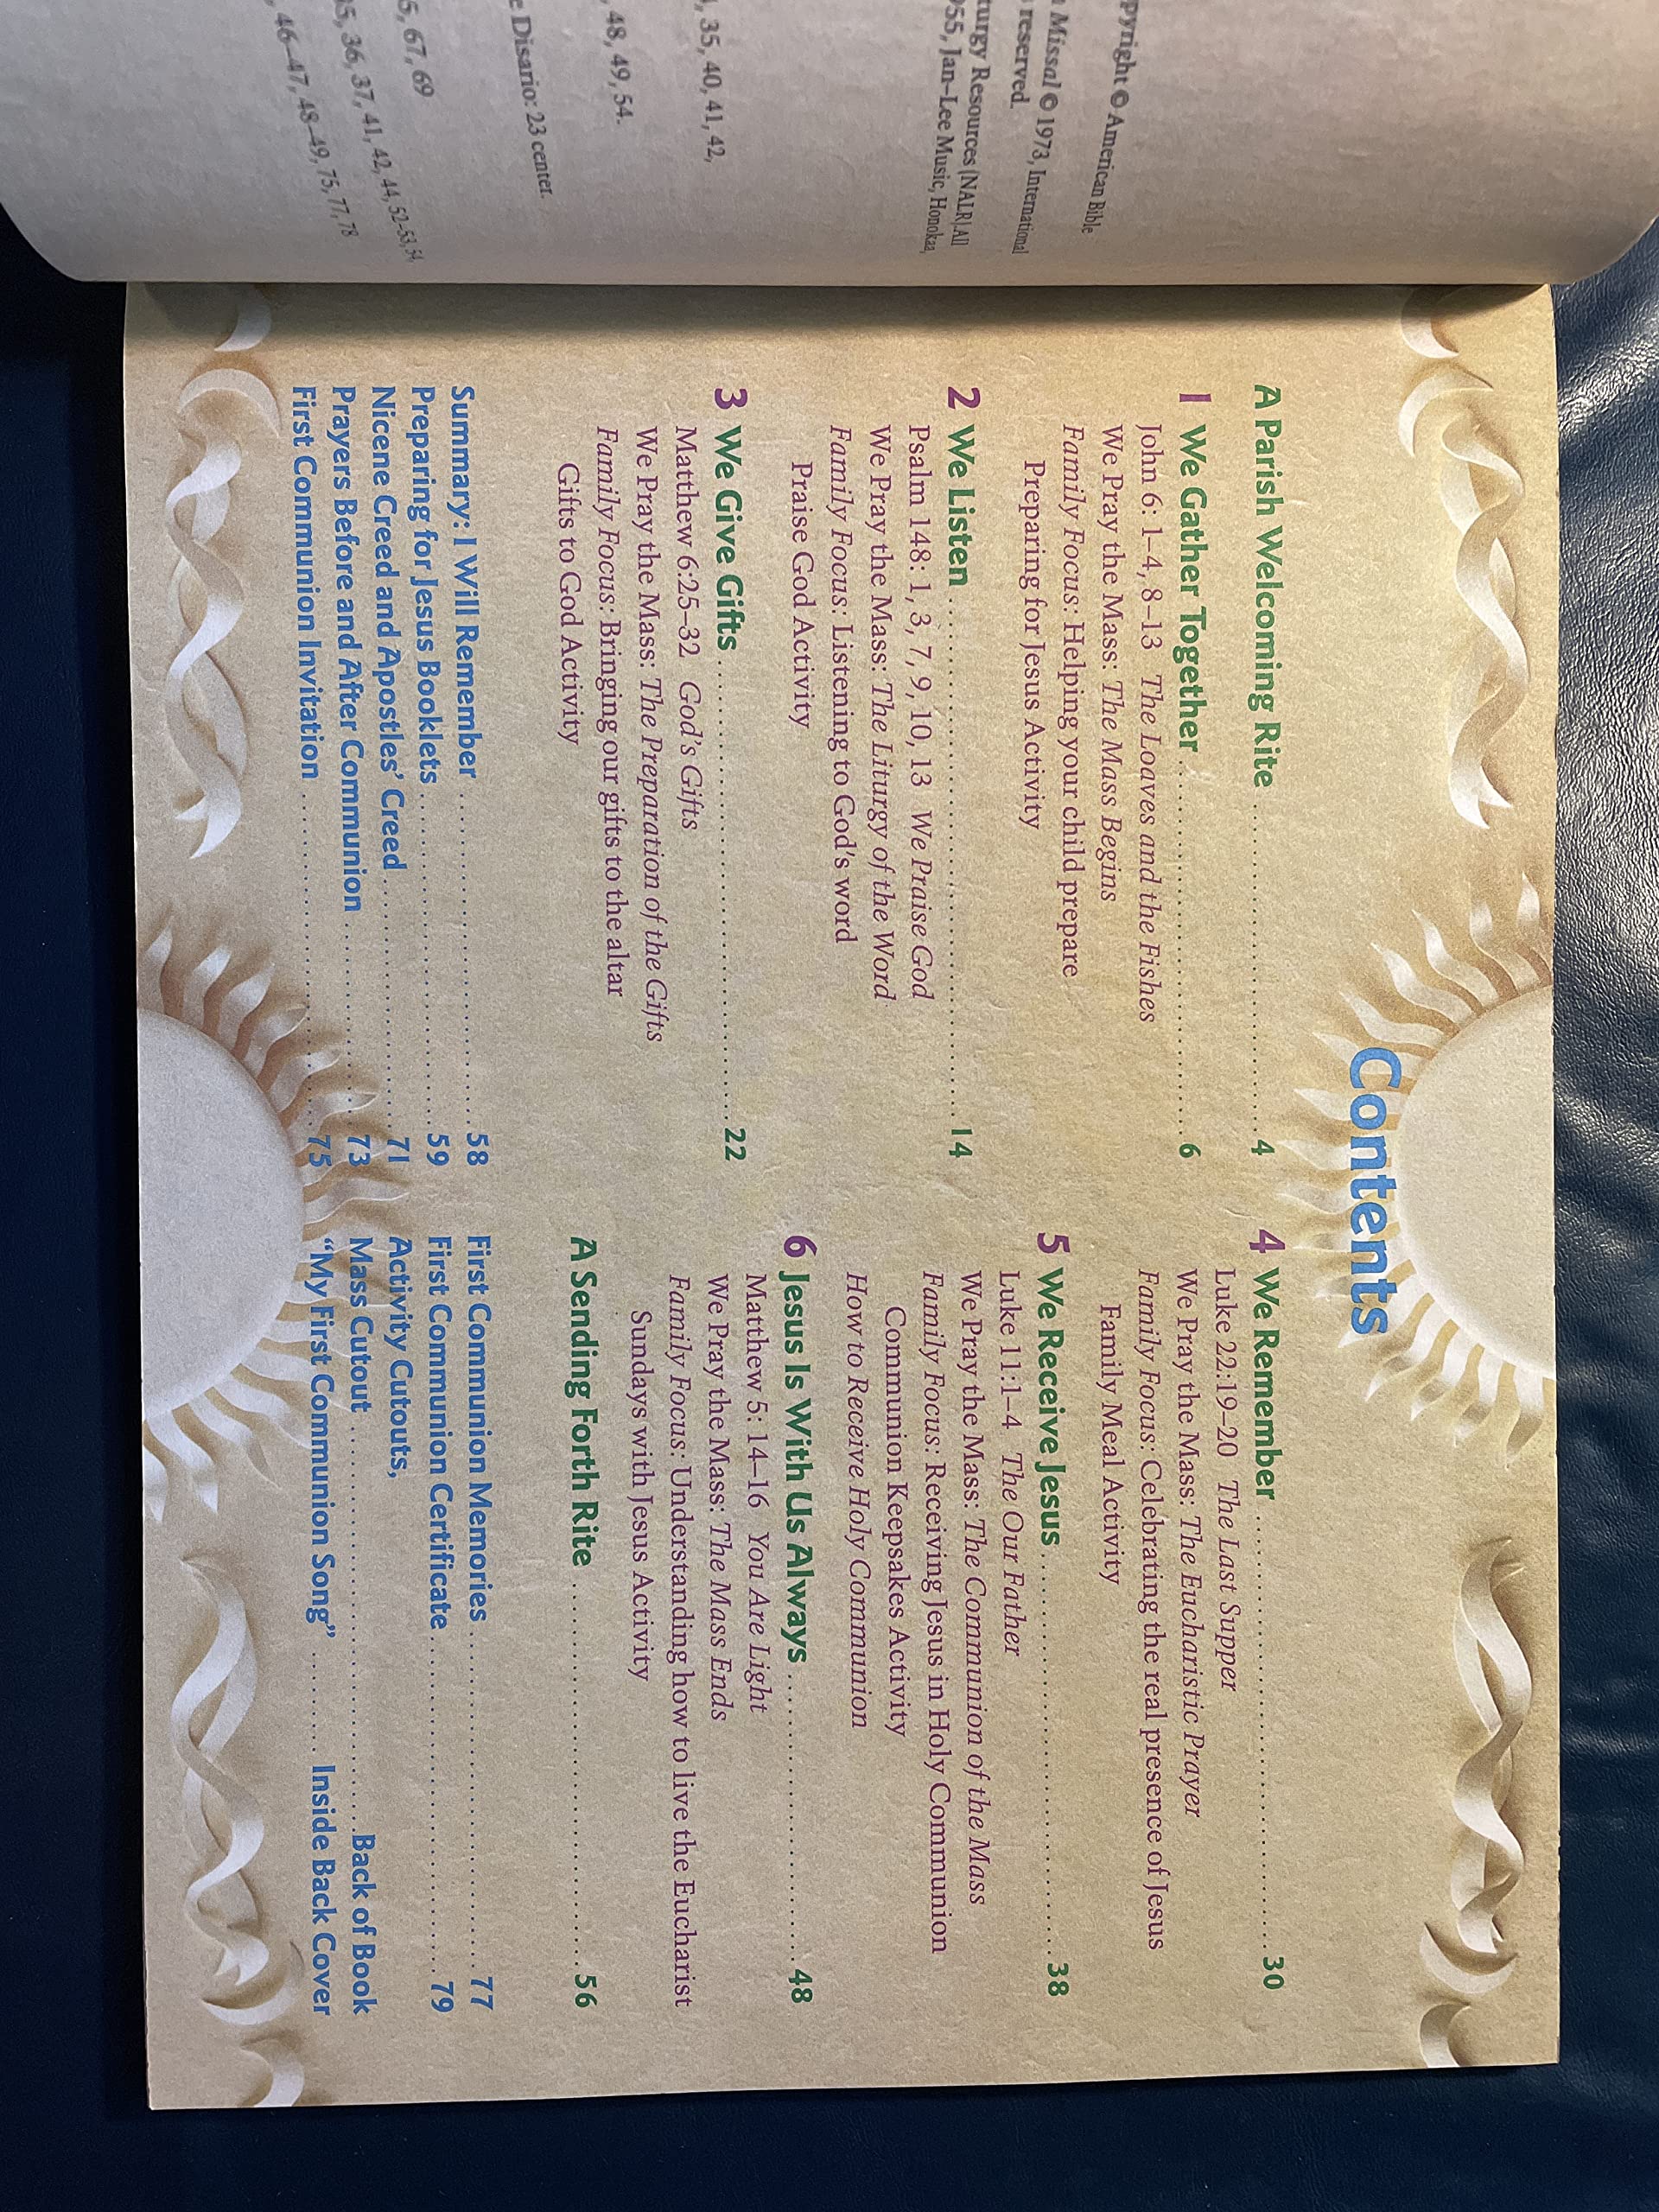 pyright © American Bible
Missal © 1973, International
reserved.
turgy Resources (NALR). All
955, Jan-Lee Music, Honokaa,
, 35, 40, 41, 42,
, 48, 49, 54.
e Disario: 23 center.
5, 67, 69
35, 36, 37, 41, 42, 44, 52–53, 54,
, 46–47, 48–49, 75, 77, 78
Contents
A Parish Welcoming Rite . . . . . . . . . . 4
1 We Gather Together . . . . . . . . . . 6
John 6: 1–4, 8–13 The Loaves and the Fishes
We Pray the Mass: The Mass Begins
Family Focus: Helping your child prepare
Preparing for Jesus Activity
2 We Listen . . . . . . . . . . 14
Psalm 148: 1, 3, 7, 9, 10, 13 We Praise God
We Pray the Mass: The Liturgy of the Word
Family Focus: Listening to God's word
Praise God Activity
3 We Give Gifts . . . . . . . . . . 22
Matthew 6:25–32 God's Gifts
We Pray the Mass: The Preparation of the Gifts
Family Focus: Bringing our gifts to the altar
Gifts to God Activity
4 We Remember . . . . . . . . . . 30
Luke 22:19–20 The Last Supper
We Pray the Mass: The Eucharistic Prayer
Family Focus: Celebrating the real presence of Jesus
Family Meal Activity
5 We Receive Jesus . . . . . . . . . . 38
Luke 11:1–4 The Our Father
We Pray the Mass: The Communion of the Mass
Family Focus: Receiving Jesus in Holy Communion
Communion Keepsakes Activity
How to Receive Holy Communion
6 Jesus Is With Us Always . . . . . . . . . . 48
Matthew 5: 14–16 You Are Light
We Pray the Mass: The Mass Ends
Family Focus: Understanding how to live the Eucharist
Sundays with Jesus Activity
A Sending Forth Rite . . . . . . . . . . 56
Summary: I Will Remember . . . . . . . . . . 58
Preparing for Jesus Booklets . . . . . . . . . . 59
Nicene Creed and Apostles' Creed . . . . . . . . . . 71
Prayers Before and After Communion . . . . . . . . . . 73
First Communion Invitation . . . . . . . . . . 75
First Communion Memories . . . . . . . . . . 77
First Communion Certificate . . . . . . . . . . 79
Activity Cutouts,
Mass Cutout . . . . . . . . . . Back of Book
“My First Communion Song” . . . . . . . Inside Back Cover